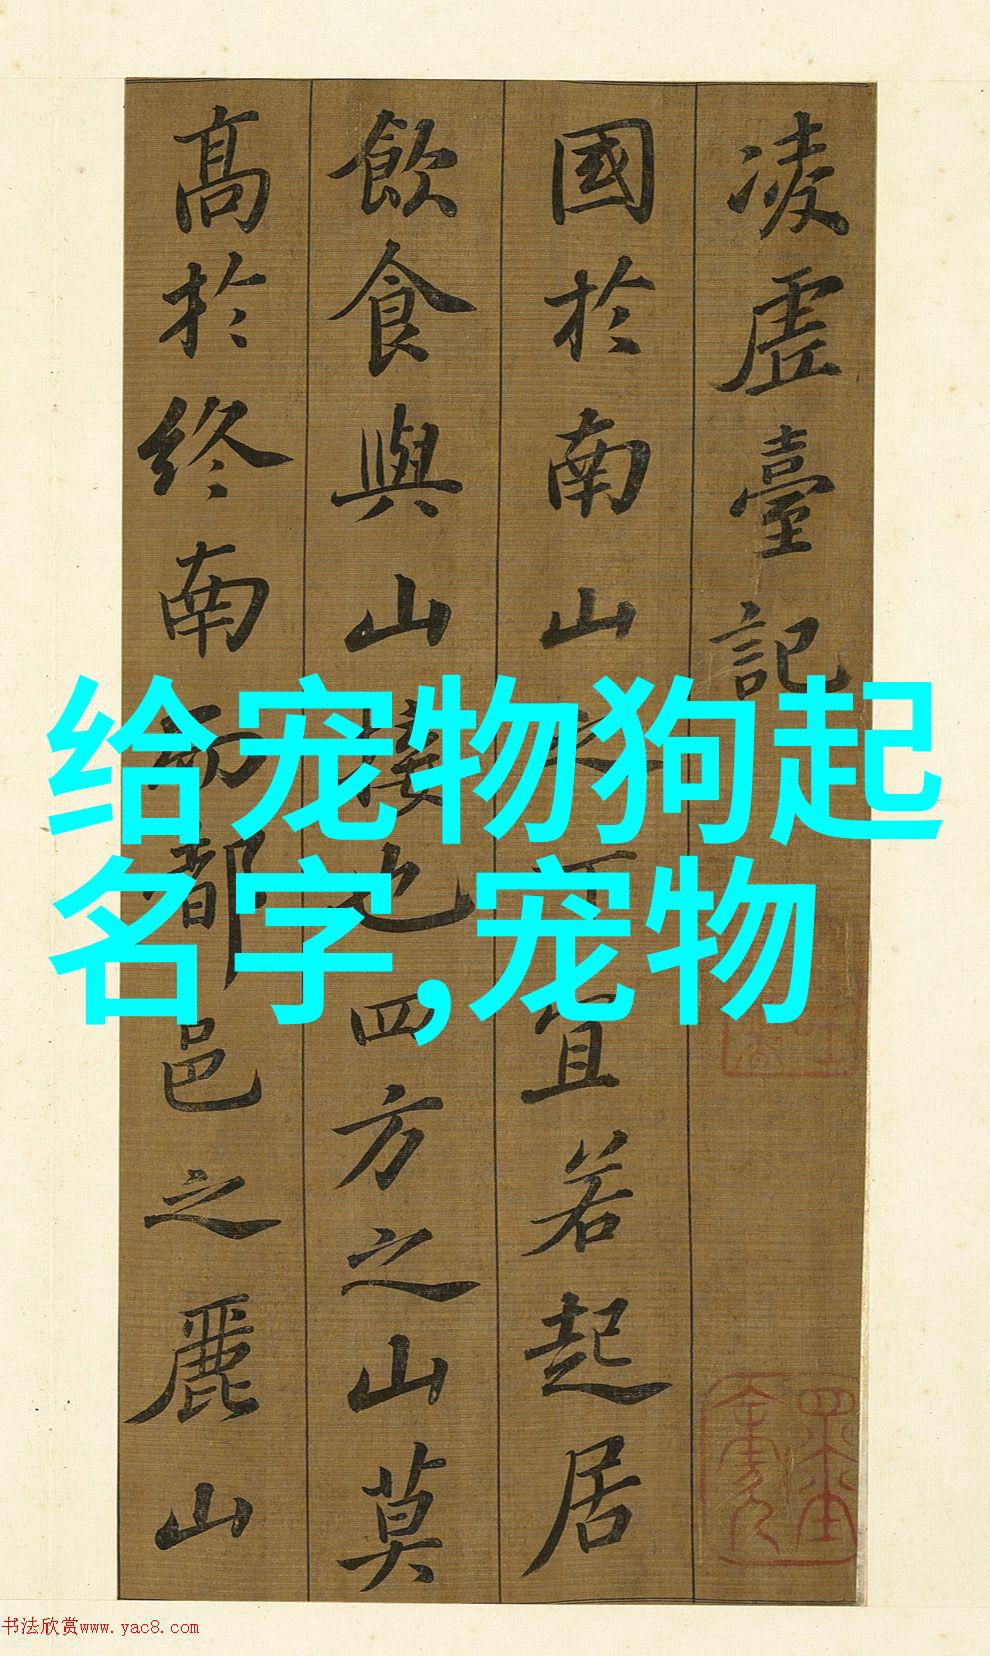 凌虛臺記
國於南山之下宜若起居
飲食與山接也四方之山莫
高於終南而都邑之麗山
给宠物狗起
名字,宠物
书法欣赏www.yac8.com